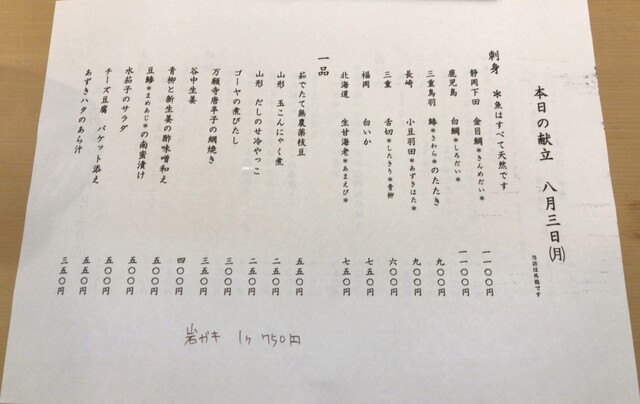 本日の献立 八月三日(月)
当店は外税です
刺身 *魚はすべて天然です
静岡下田 金目鯛*きんめだい* 一一〇〇円
鹿児島 白鯛*しろだい* 一一〇〇円
三重鳥羽 鰆*さわら*のたたき 九〇〇円
長崎 小豆羽田*あずきはた* 九〇〇円
三重 舌切*したきり*青柳 六〇〇円
福岡 白いか 七五〇円
北海道 生甘海老*あまえび* 七五〇円
一品
茹でたて無農薬枝豆 五五〇円
山形 玉こんにゃく煮 二五〇円
山形 だしのせ冷やっこ 二五〇円
ゴーヤの煮びたし 三〇〇円
万願寺唐辛子の網焼き 三五〇円
谷中生姜 四〇〇円
青柳と新生姜の酢味噌和え 五五〇円
豆鯵*まめあじ*の南蛮漬け 五五〇円
水茄子のサラダ 五〇〇円
チーズ豆腐 バケット添え 五五〇円
あずきハタのあら汁 三五〇円
岩ガキ 1ケ 750円